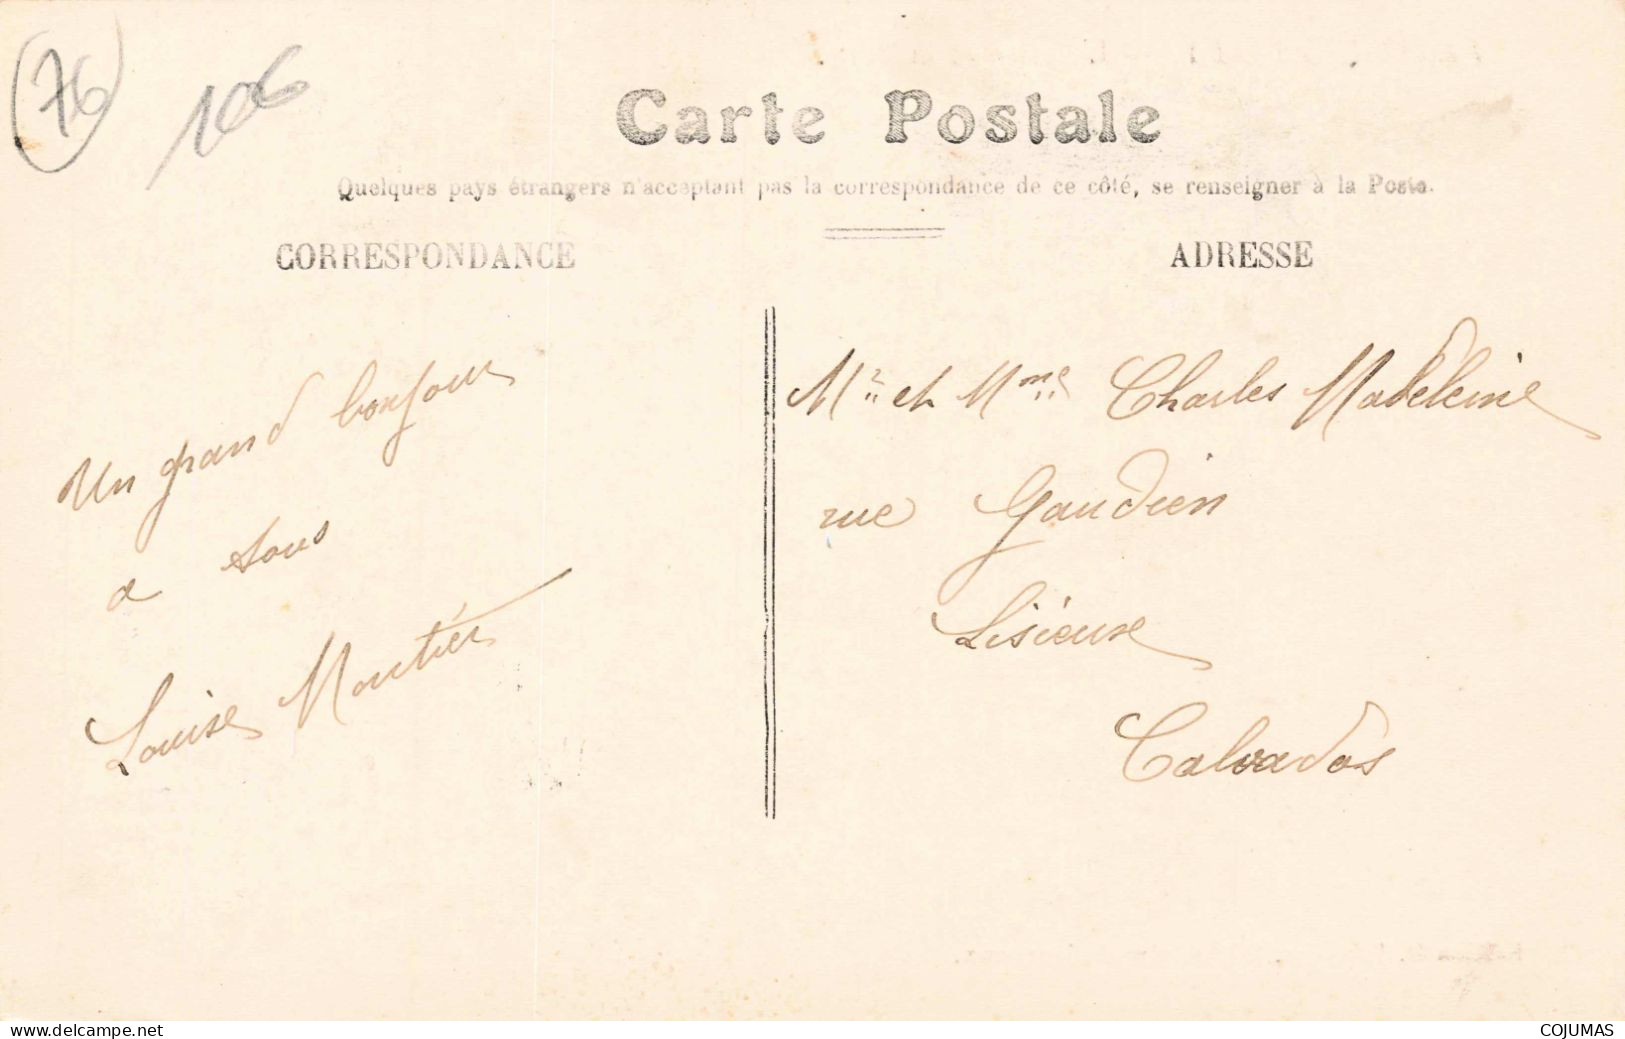 76
106
Carte Postale
Quelques pays étrangers n'acceptant pas la correspondance de ce côté, se renseigner à la Poste.
CORRESPONDANCE
ADRESSE
Un grand bonjour
a tous
Louise Moutier
Mr et Mme Charles Madeleine
rue Gaudien
Lisieuxe
Calvados
www.delcampe.net
COJUMAS